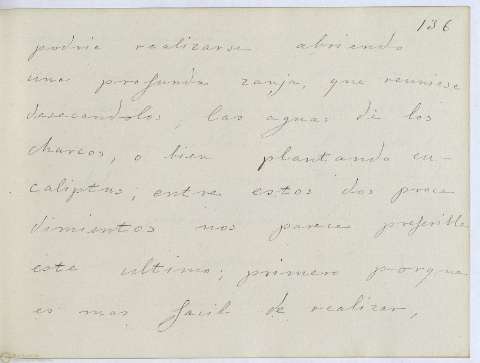 136
podria realizarse abriendo
una profunda zanja, que reuniese
desecandolos, las aguas de los
charcos, o bien plantando eu-
caliptus; entre estos dos proce
dimientos nos parece preferible
este ultimo; primero porque
es mas facil de realizar,